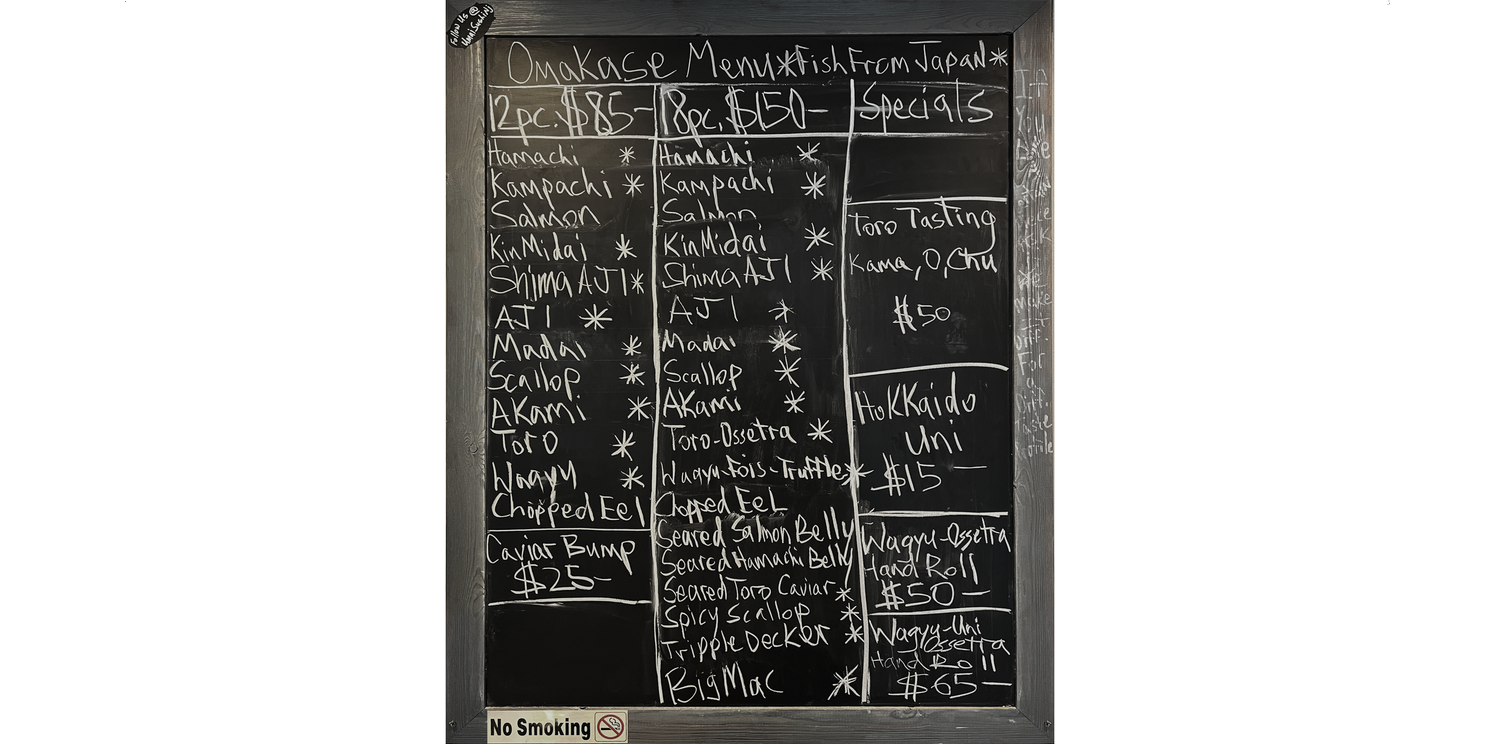 Follow Us @
UmaiSushiNJ
Omakase Menu *Fish From Japan*
12pc. $85-
Hamachi *
Kampachi *
Salmon
KinMidai *
Shima AJI *
AJI *
Madai *
Scallop *
AKami *
Toro *
Wagyu *
Chopped Eel
Caviar Bump
$25-
18pc. $150-
Hamachi *
Kampachi *
Salmon
KinMidai *
Shima AJI *
AJI *
Madai *
Scallop *
AKami *
Toro-Ossetra *
Wagyu-Fois-Truffle *
Chopped EeL
Seared Salmon Belly
Seared Hamachi Belly
Seared Toro Caviar *
Spicy Scallop *
Tripple Decker *
Big Mac *
Specials
Toro Tasting
Kama, O, Chu
$50
HoKKaido
Uni
$15-
Wagyu-Ossetra
Hand Roll
$50-
Wagyu-Uni
Ossetra
Hand Roll
$65-
If
You
We
make
IT
Diff.
For
a
Diff.
Taste
No Smoking